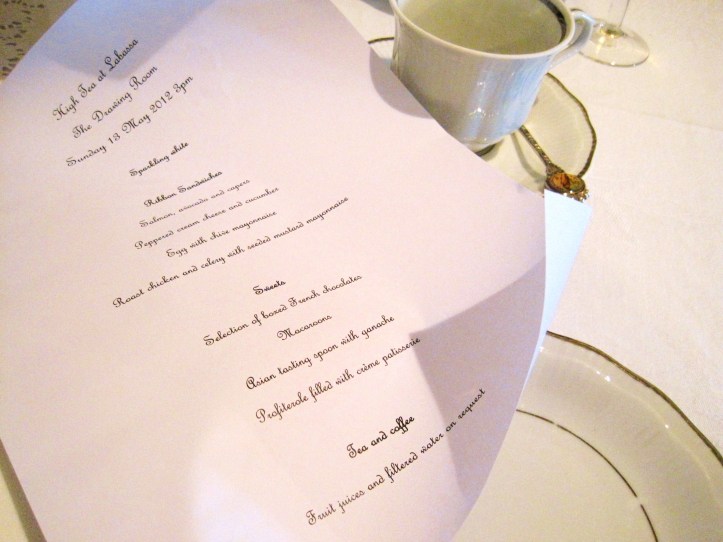 High Tea at Labassa
The Drawing Room
Sunday 13 May 2012 3pm
Sparkling white
Ribbon Sandwiches
Salmon, avocado and capers
Peppered cream cheese and cucumber
Egg with chive mayonnaise
Roast chicken and celery with seeded mustard mayonnaise
Sweets
Selection of boxed French chocolates
Macaroons
Asian tasting spoon with ganache
Profiterole filled with crème patisserie
Tea and coffee
Fruit juices and filtered water on request